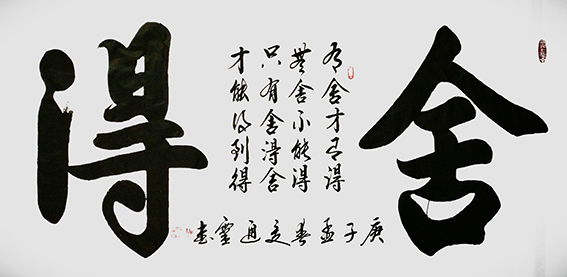 舍得
有舍才有得
無舍不能得
只有舍得舍
才能得到得
庚子孟春通靈書